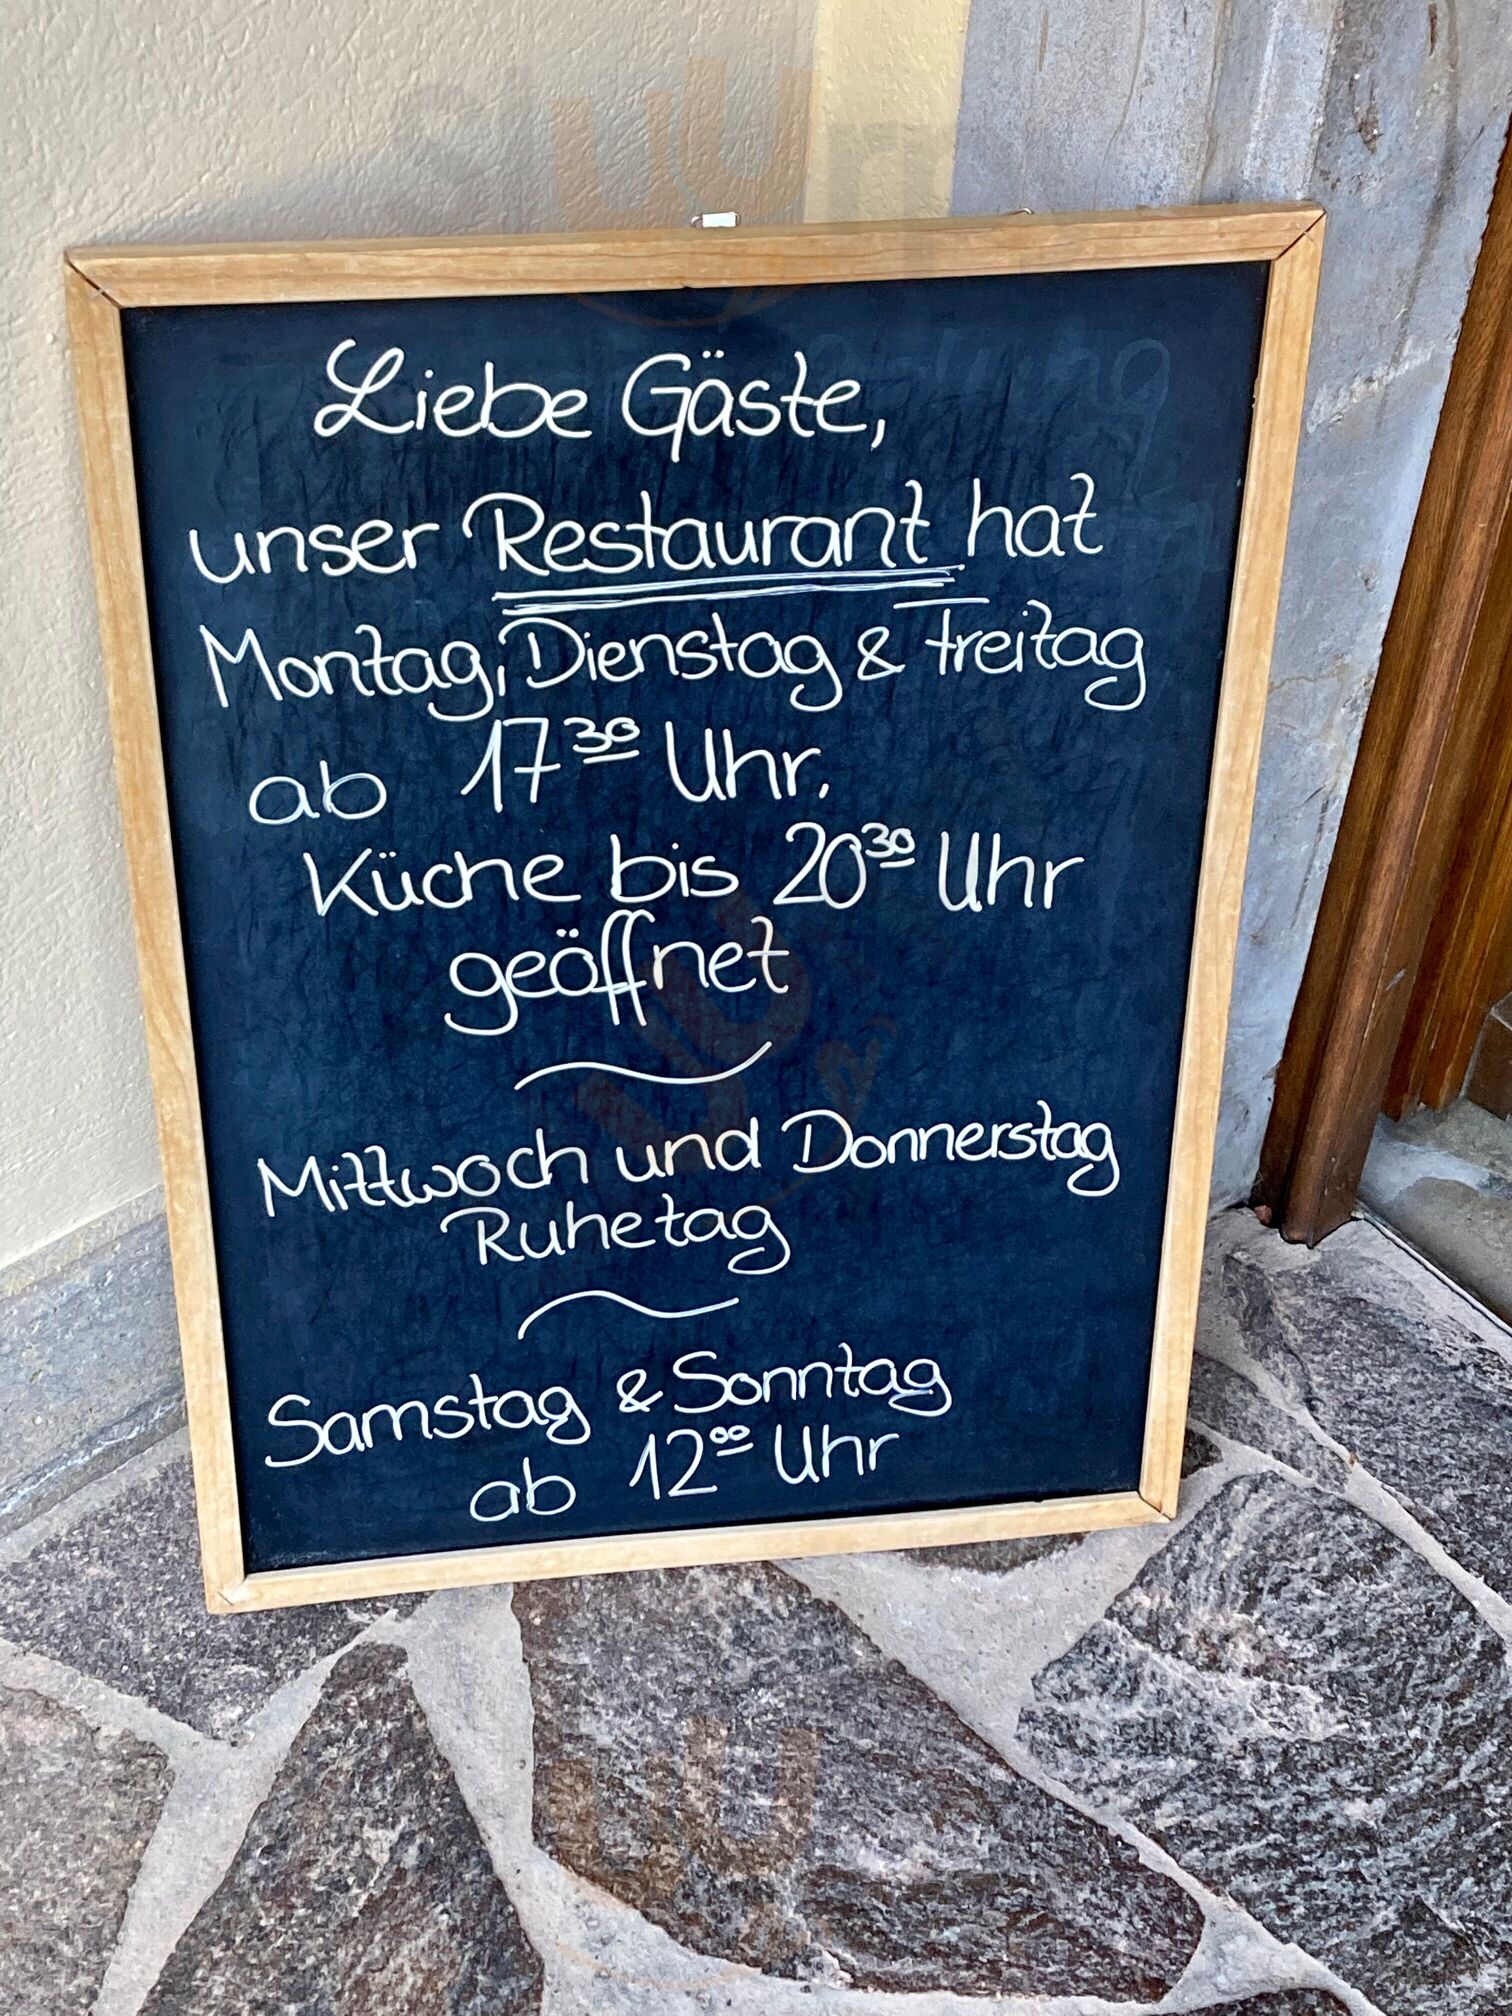 Liebe Gäste,
unser Restaurant hat
Montag, Dienstag & Freitag
ab 17³⁰ Uhr.
Küche bis 20³⁰ Uhr
geöffnet
Mittwoch und Donnerstag
Ruhetag
Samstag & Sonntag
ab 12⁰⁰ Uhr